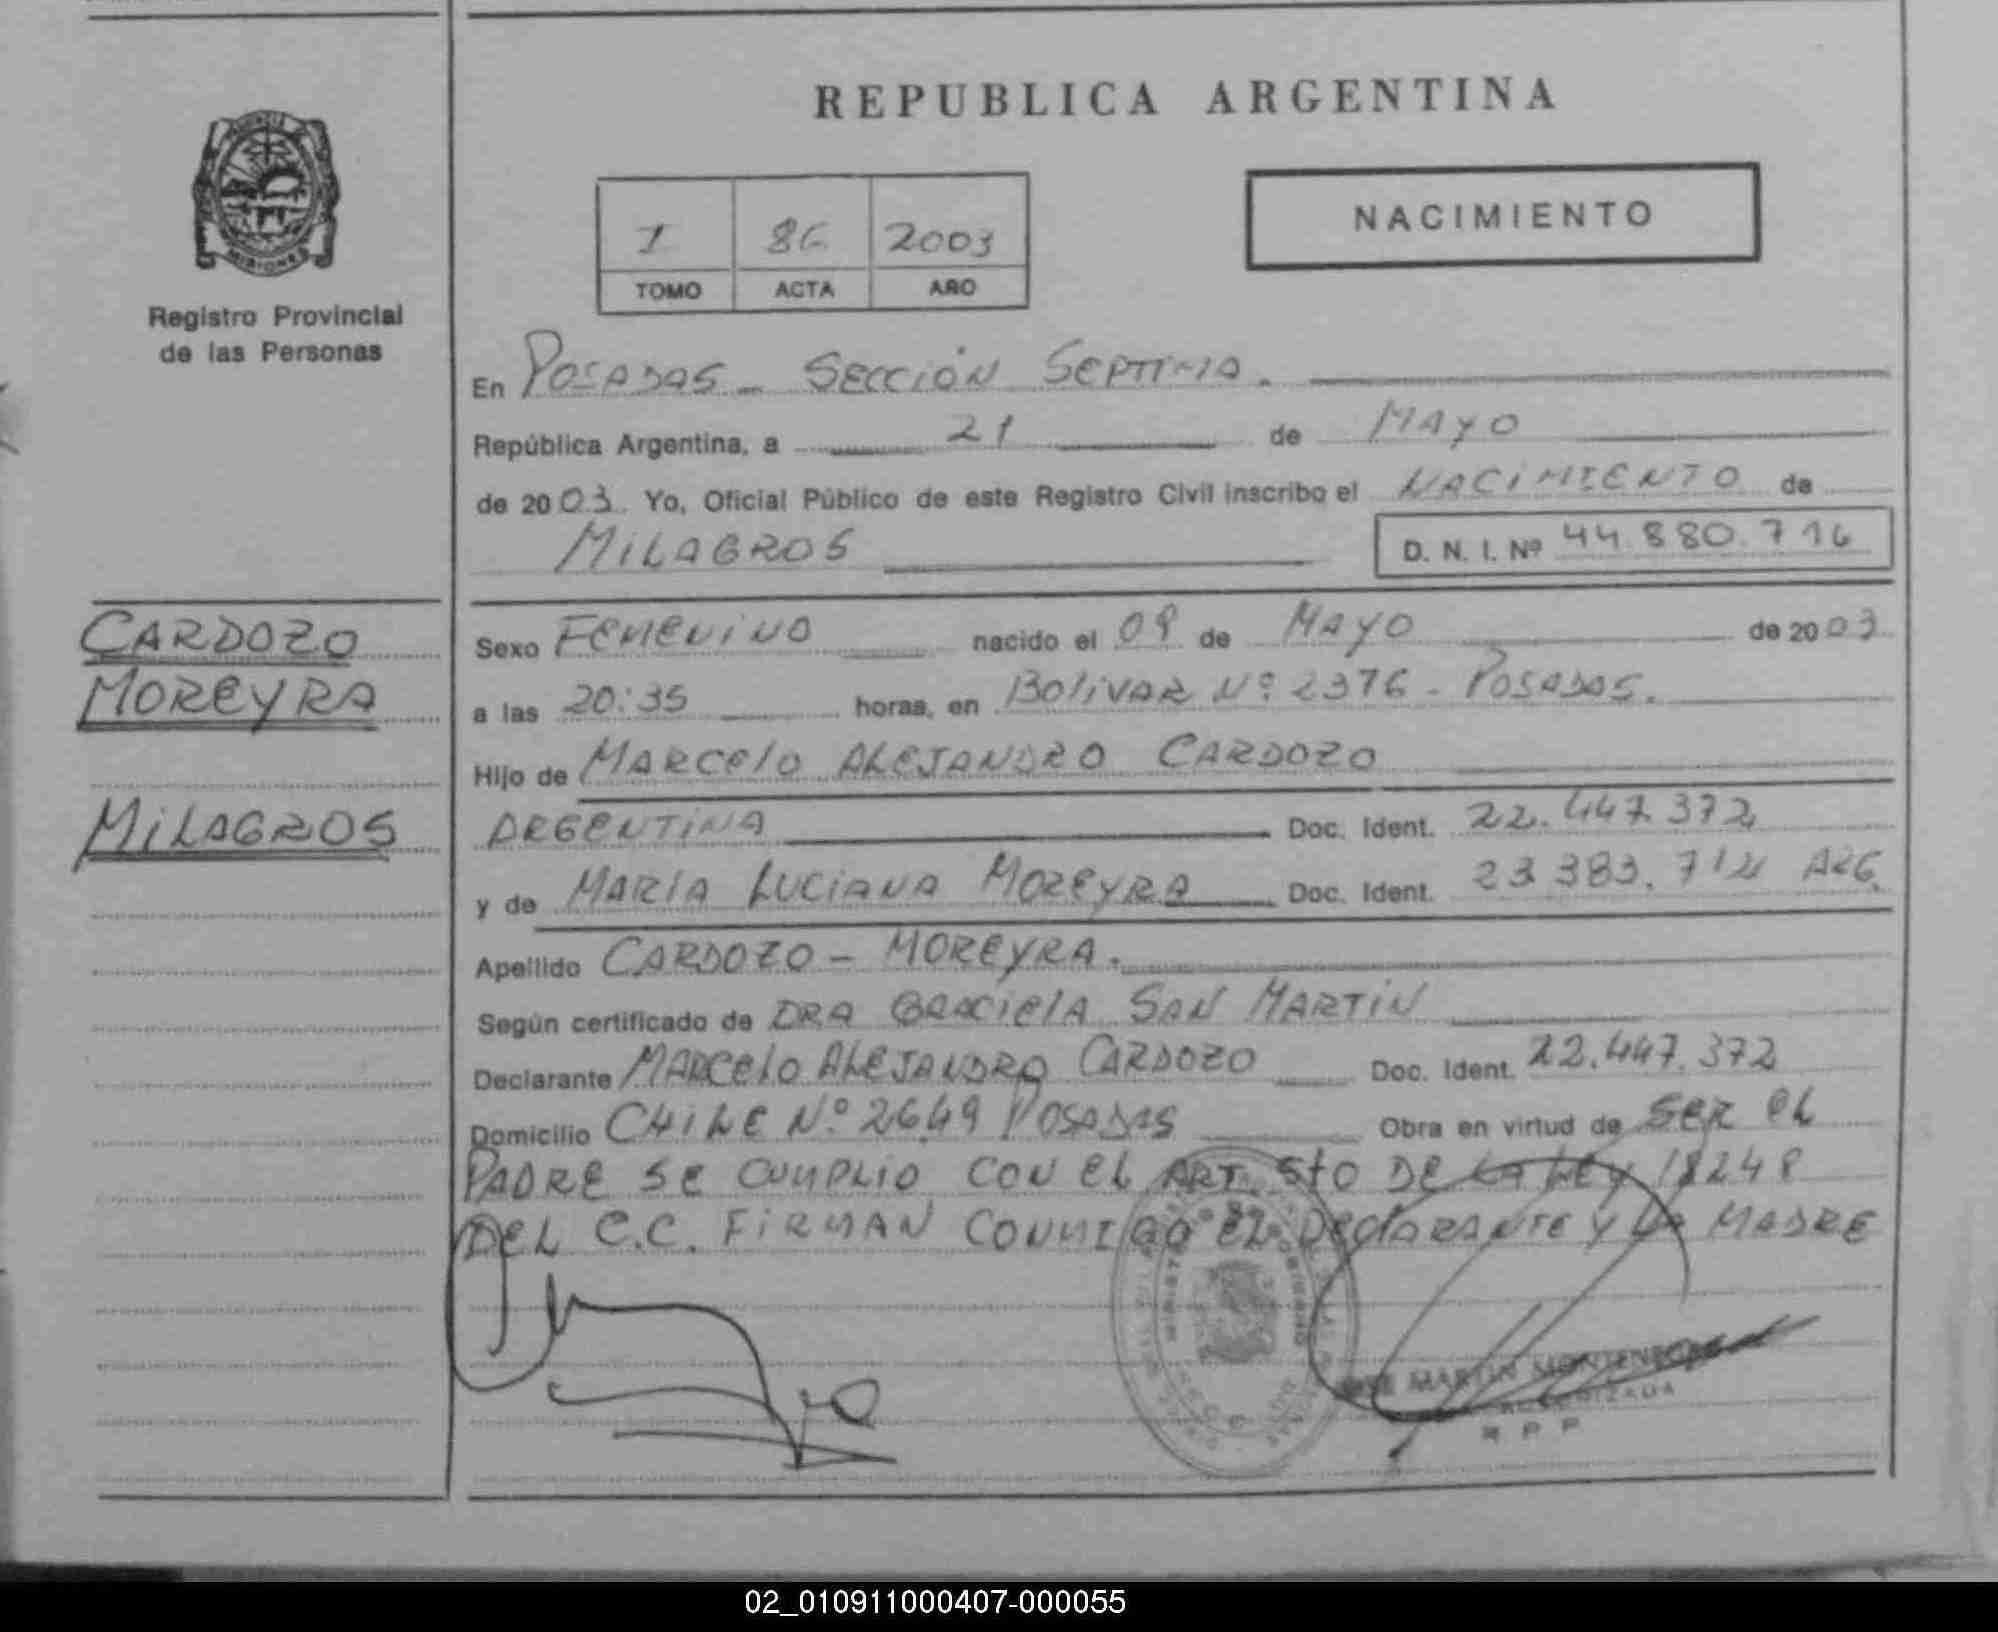 REPUBLICA ARGENTINA
PROVINCIA DE
MISIONES
Registro Provincial
de las Personas
NACIMIENTO
1 86 2003
TOMO ACTA AÑO
En POSADAS - SECCIÓN SEPTIMA.
República Argentina, a 21 de MAYO
de 2003. Yo, Oficial Público de este Registro Civil inscribo el NACIMIENTO de
MILAGROS
D. N. I. Nº 44.880.716
CARDOZO
MOREYRA
MILAGROS
Sexo FEMENINO nacido el 09 de MAYO de 2003
a las 20:35 horas, en BOLIVAR Nº 2376 - POSADAS.
Hijo de MARCELO ALEJANDRO CARDOZO
ARGENTINA Doc. Ident. 22.447.372
y de MARIA LUCIANA MOREYRA Doc. Ident. 23.383.712 ARG.
Apellido CARDOZO - MOREYRA.
Según certificado de DRA GRACIELA SAN MARTIN
Declarante MARCELO ALEJANDRO CARDOZO Doc. Ident. 22.447.372
Domicilio CHILE Nº 2649 POSADAS Obra en virtud de SER EL
PADRE SE CUMPLIO CON EL ART. 5to DE LA LEY 18248
DEL C.C. FIRMAN CONMIGO EL DECLARANTE Y LA MADRE
MARTIN MONTENEGRO
R P P
02_010911000407-000055